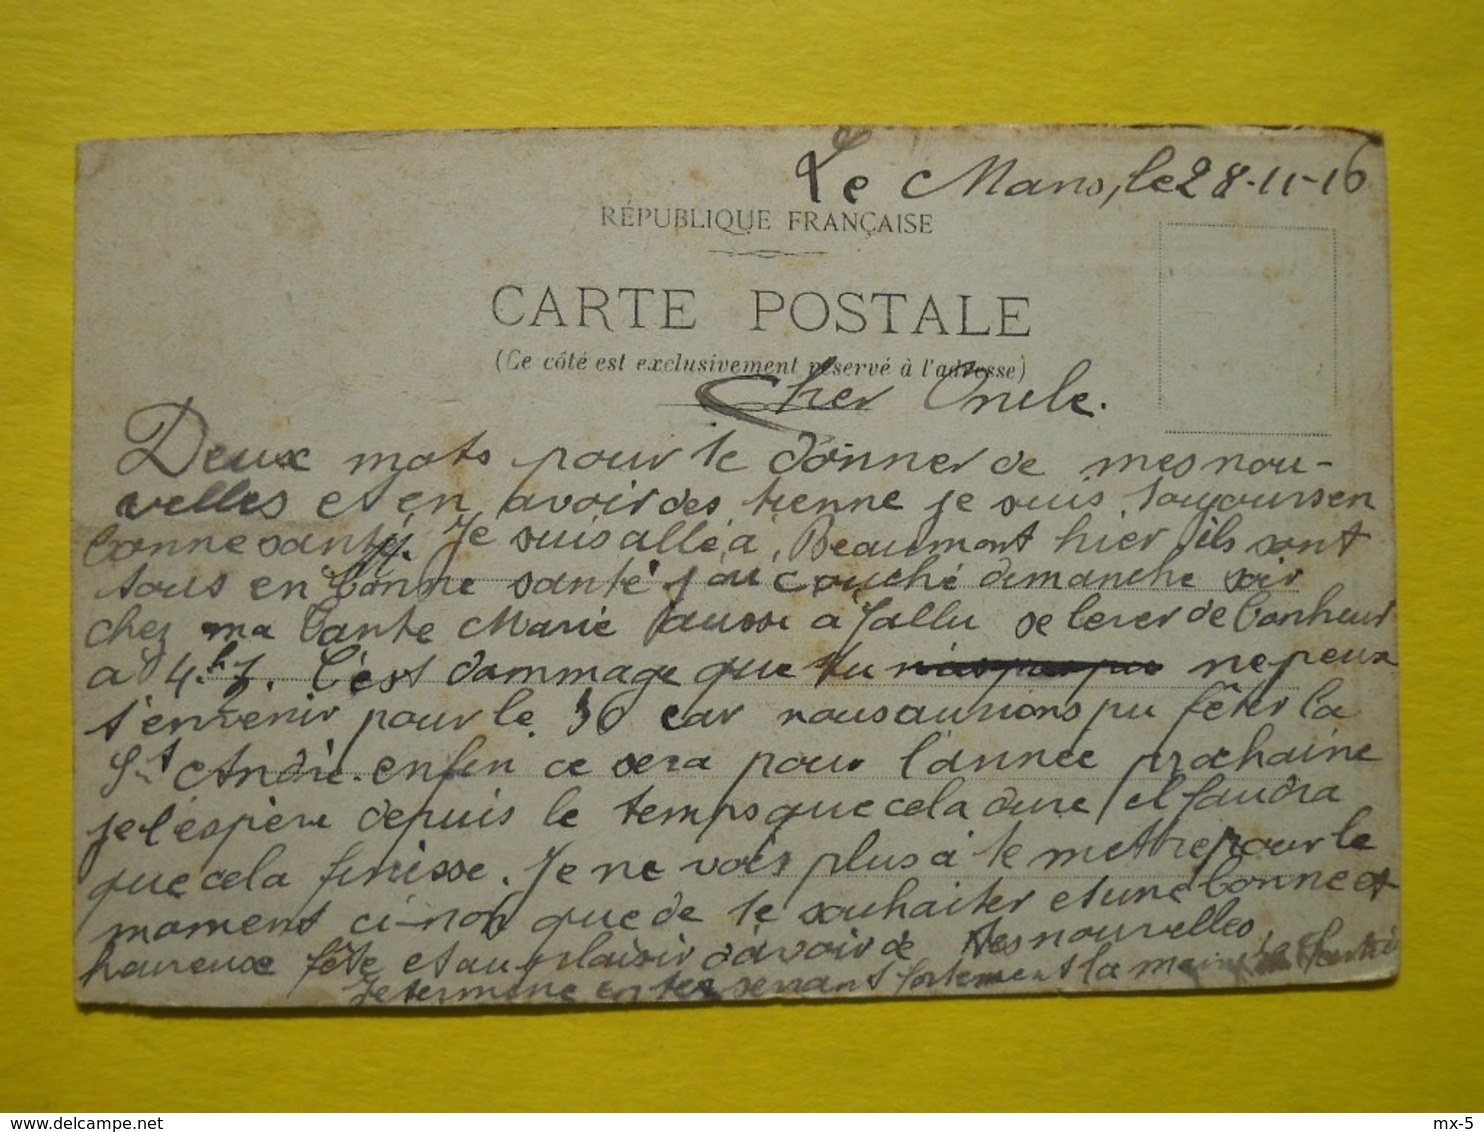 Le Mans, le 28-11-16
RÉPUBLIQUE FRANÇAISE
CARTE POSTALE
(Ce côté est exclusivement réservé à l'adresse)
Cher Oncle.
Deux mots pour te donner de mes nou-
velles et en avoir des tienne je suis toujours en
bonne santé. Je suis allé a Beaumont hier ils sont
tous en bonne santé j'ai couché dimanche soir
chez ma tante Marie aussi a se lever de bonheur
a 4 h. C'est dommage que tu ne peux
t'en venir pour le 30 car nous aurions pu fêter la
St André. enfin ce sera pour l'année prochaine
je l'espère depuis le temps que cela dure il faudra
que cela finisse. Je ne vois plus à te mettre pour le
moment ci-non que de te souhaiter et une bonne et
heureuse fête et au plaisir d'avoir de tes nouvelles
Je termine en te serrant fortement la main
delcampe.net
mx-5